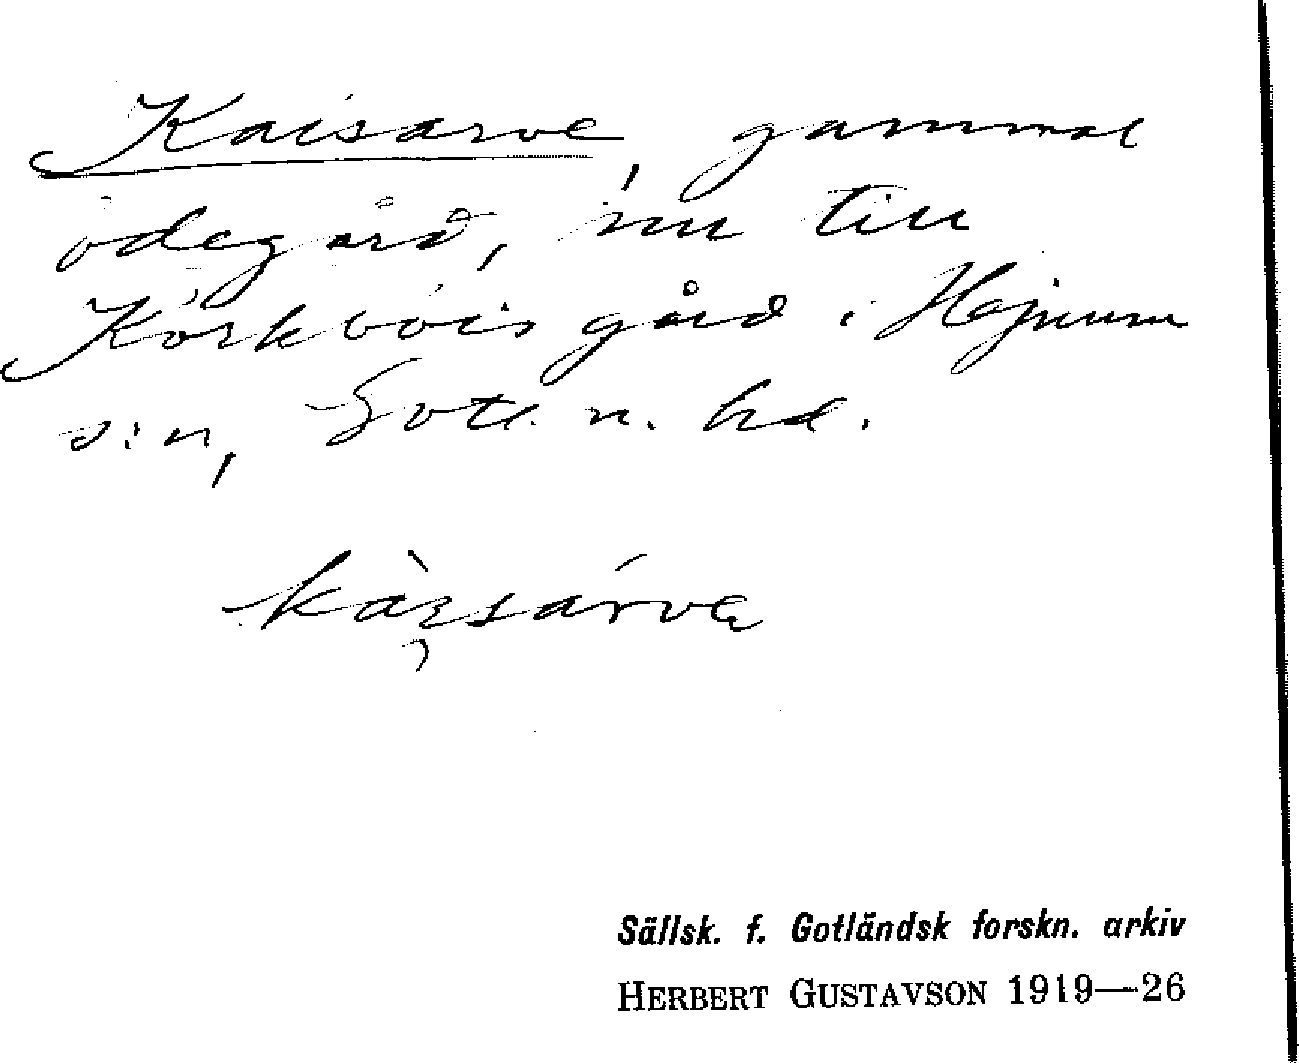 Kaisarve, gammal
ödegård, nu till
Körkböis gård i Hejnum
s:n, Gotl. n. hd.
kàɪsárvɐ
Sällsk. f. Gotländsk forskn. arkiv
HERBERT GUSTAVSON 1919—26